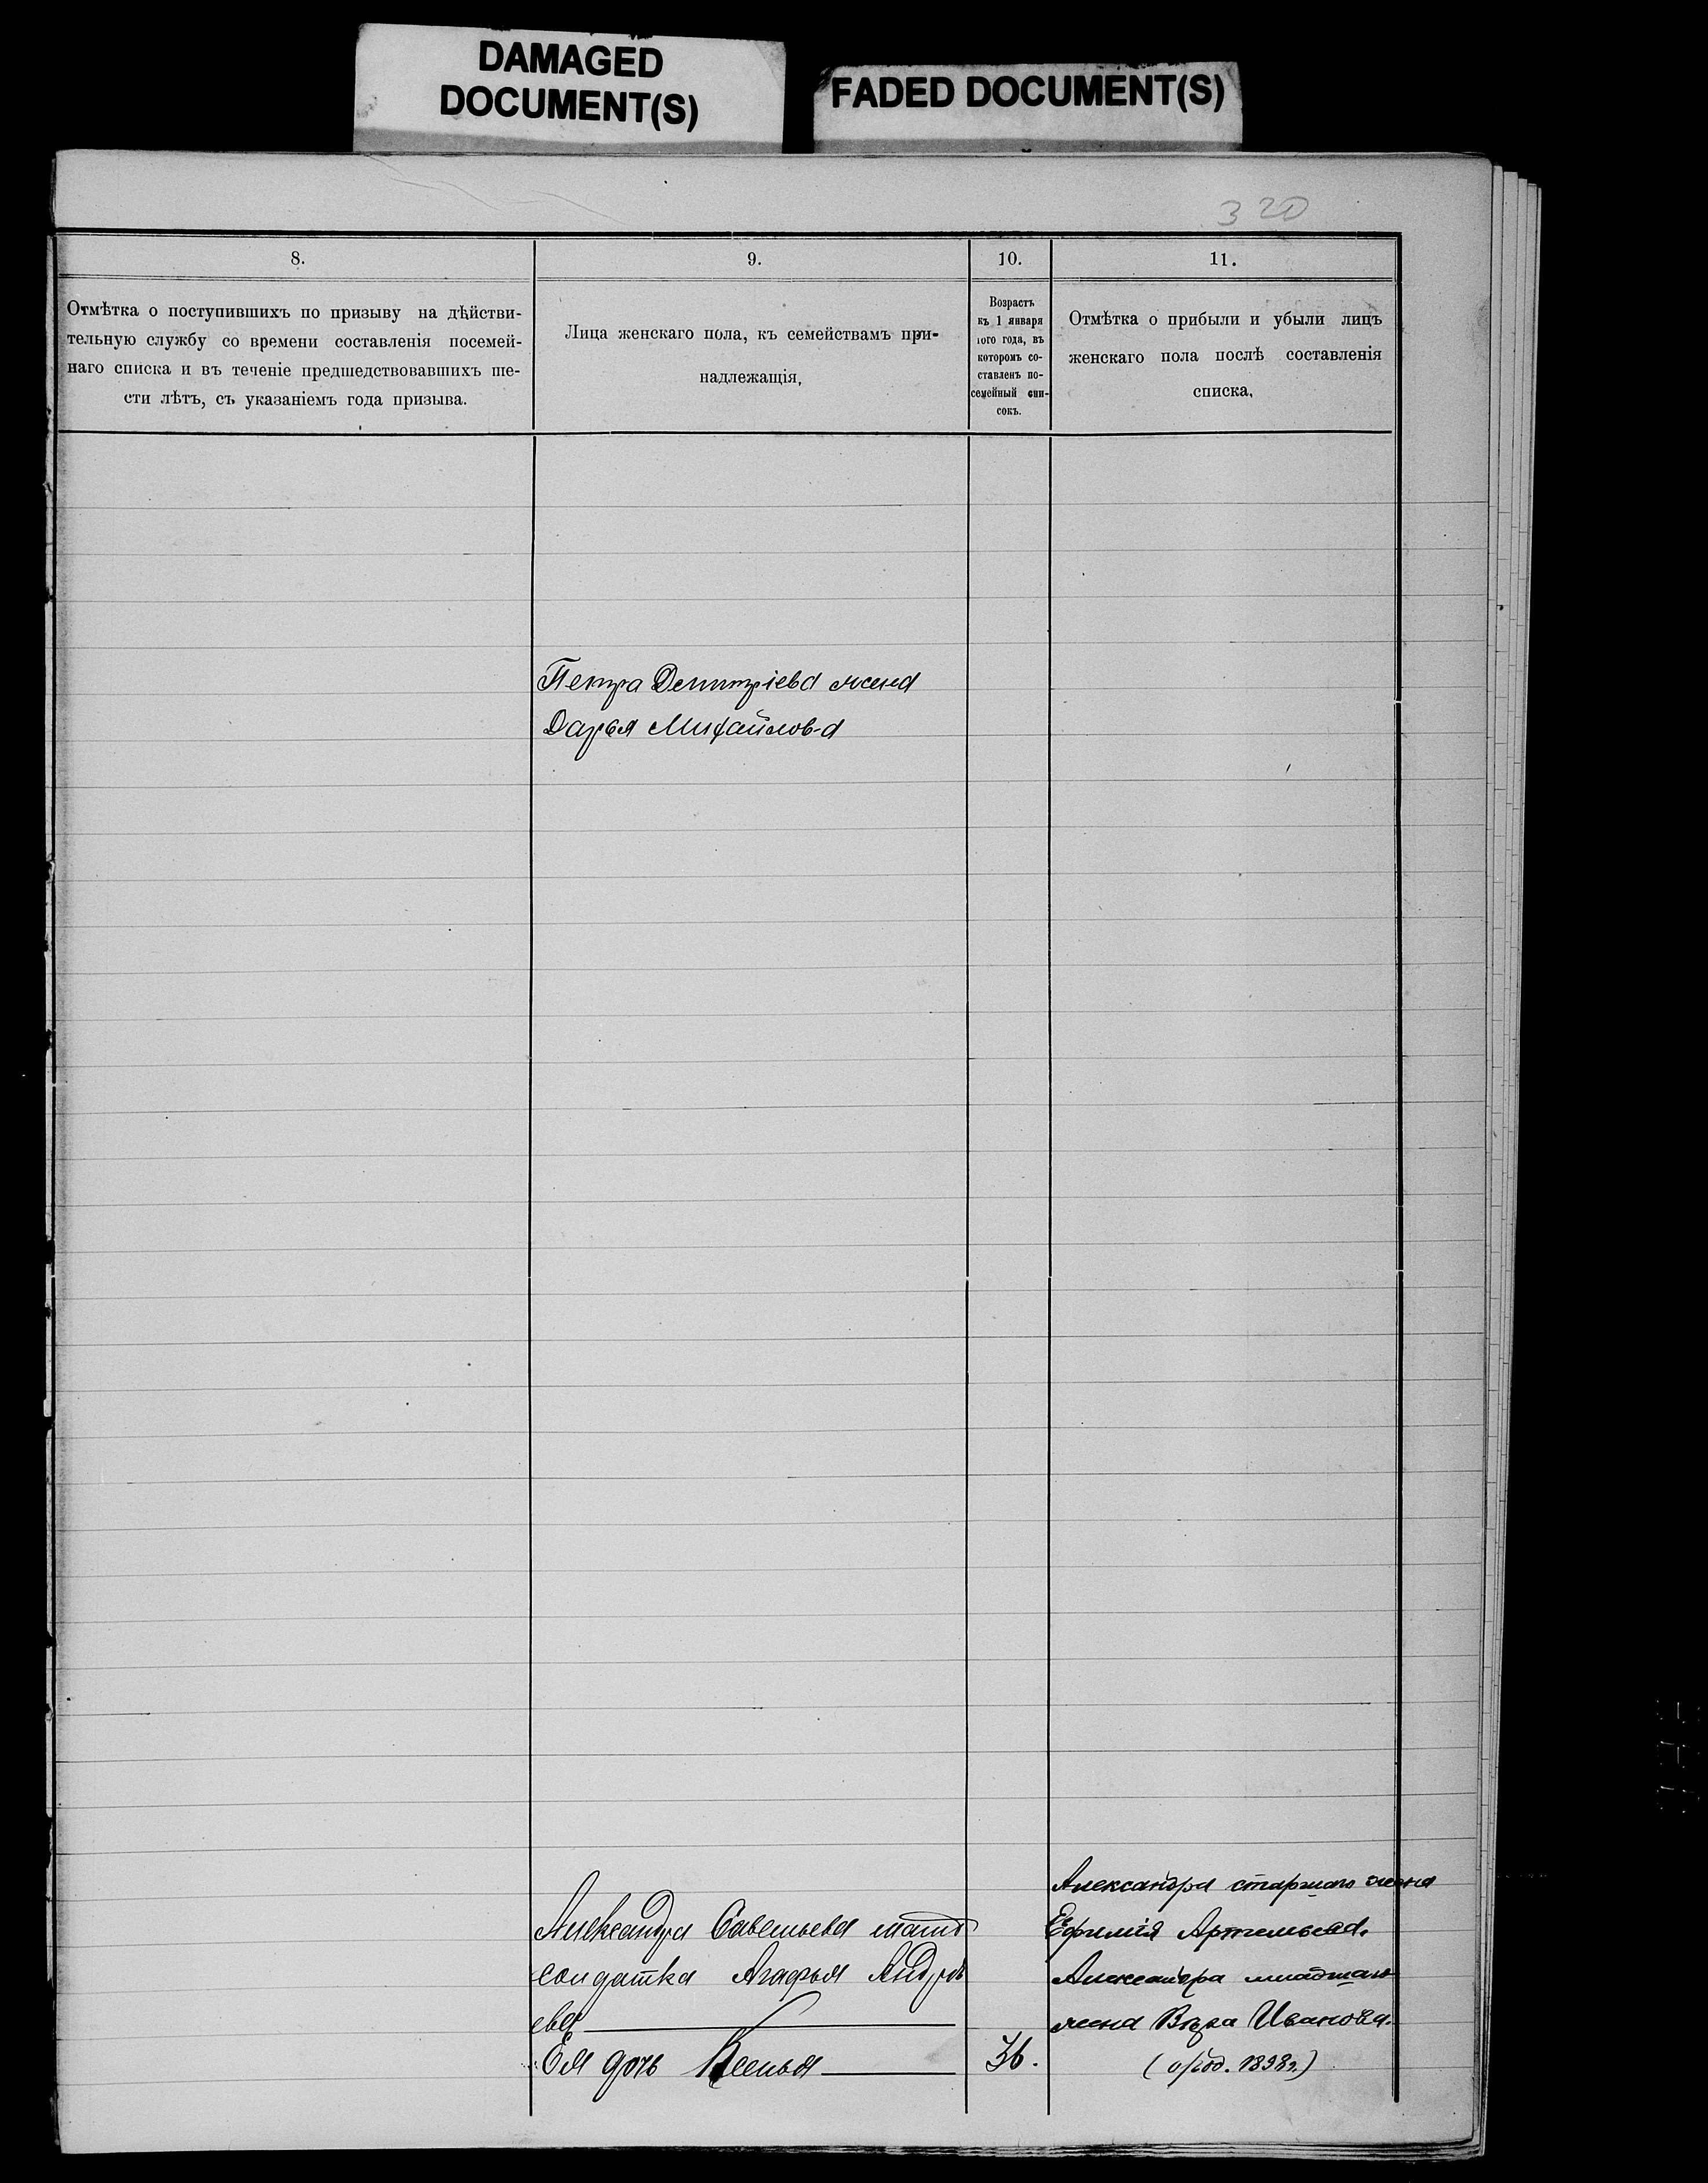 DAMAGED
DOCUMENT(S)
FADED DOCUMENT(S)
320
8.
9.
10.
11.
Отмѣтка о поступившихъ по призыву на дѣйстви-
тельную службу со времени составленія посемей-
наго списка и въ теченіе предшедствовавшихъ ше-
сти лѣтъ, съ указаніемъ года призыва.
Лица женскаго пола, къ семействамъ при-
надлежащія,
Возрастъ
къ 1 января
того года, въ
которомъ со-
ставленъ по-
семейный спи-
сокъ.
Отмѣтка о прибыли и убыли лицъ
женскаго пола послѣ составленія
списка,
Петра Дмитріева жена
Дарья Михайлова
Александра Савельева мать
солдатка Агафья Андрѣ
ева
Ея дочь Ксенья
36.
Александра старшаго жена
Ефимія Артемьева.
Александра младшаго
жена Вѣра Иванова.
1898г.)